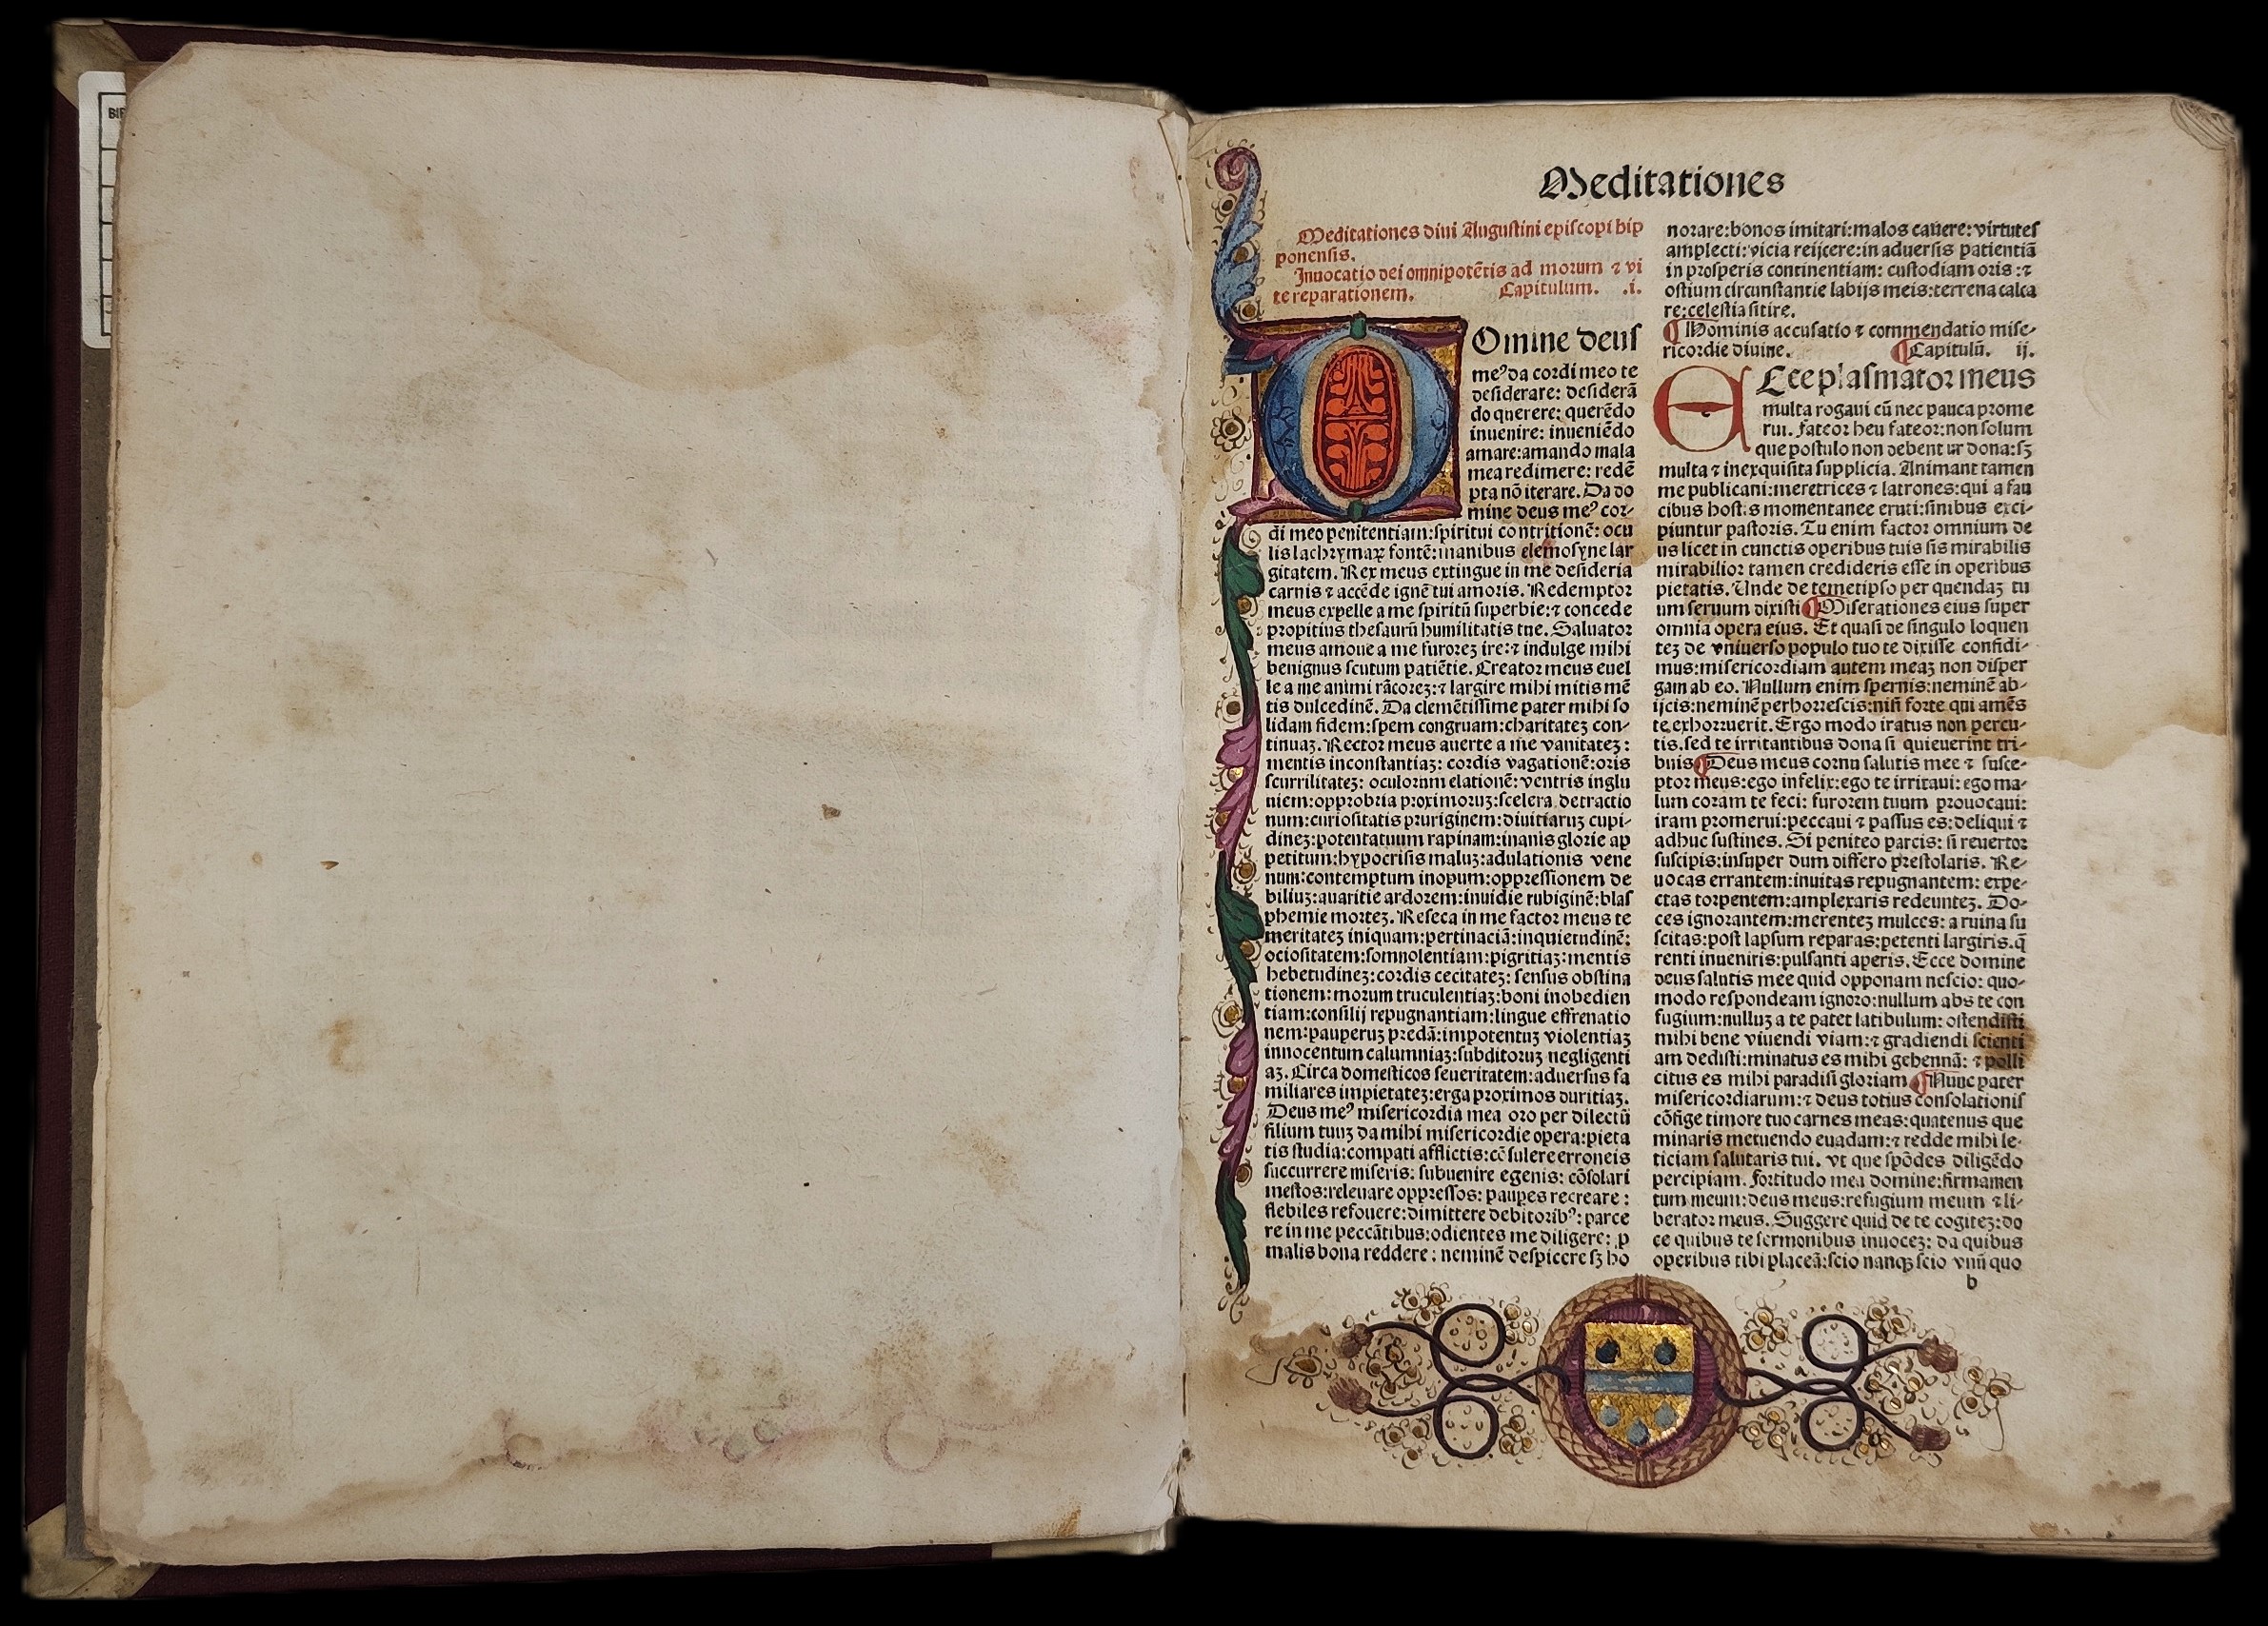 BIB
Meditationes
Meditationes diui Augustini episcopi hip
ponensis.
Inuocatio dei omnipotētis ad morum ⁊ vi
te reparationem. Capitulum. .i.
Omine deus
meꝰ da cordi meo te
desiderare: desiderā
do querere: querēdo
inuenire: inueniēdo
amare: amando mala
mea redimere: redē
pta nō iterare. Da do
mine deus meꝰ cor-
di meo penitentiam: spiritui contritionē: ocu
lis lachrymaꝝ fontē: manibus elemosyne lar
gitatem. Rex meus extingue in me desideria
carnis ⁊ accēde ignē tui amoris. Redemptor
meus expelle a me spiritū superbie: ⁊ concede
propitius thesaurū humilitatis tue. Saluator
meus amoue a me furoreꝫ ire: ⁊ indulge mihi
benignus scutum patiētie. Creator meus euel
le a me animi rācoreꝫ: ⁊ largire mihi mitis mē
tis dulcedinē. Da clemētissime pater mihi so
lidam fidem: spem congruam: charitateꝫ con-
tinuaꝫ. Rector meus auerte a me vanitateꝫ:
mentis inconstantiaꝫ: cordis vagationē: oris
scurrilitateꝫ: oculorum elationē: ventris inglu
uiem: opprobria proximoruꝫ: scelera detractio
num: curiositatis pruriginem: diuitiaruꝫ cupi-
dineꝫ: potentatuum rapinam: inanis glorie ap
petitum: hypocrisis maluꝫ: adulationis vene
num: contemptum inopum: oppressionem de
biliuꝫ: auaritie ardorem: inuidie rubiginē: blas
phemie morteꝫ. Reseca in me factor meus te
meritateꝫ iniquam: pertinaciā: inquietudinē:
ociositatem: somnolentiam: pigritiaꝫ: mentis
hebetudineꝫ: cordis cecitateꝫ: sensus obstina
tionem: morum truculentiaꝫ: boni inobedien
tiam: consilij repugnantiam: lingue effrenatio
nem: pauperuꝫ predā: impotentuꝫ violentiaꝫ
innocentum calumniaꝫ: subditoruꝫ negligenti
aꝫ. Circa domesticos seueritatem: aduersus fa
miliares impietateꝫ: erga proximos duritiaꝫ.
Deus meꝰ misericordia mea oro per dilectū
filium tuuꝫ da mihi misericordie opera: pieta
tis studia: compati afflictis: cōsulere erroneis
succurrere miseris: subuenire egenis: cōsolari
mestos: releuare oppressos: paupes recreare:
flebiles refouere: dimittere debitoribꝰ: parce
re in me peccātibus: odientes me diligere: ꝓ
malis bona reddere: neminē despicere sꝫ ho
norare: bonos imitari: malos cauere: virtutes
amplecti: vicia reijcere: in aduersis patientiā
in prosperis continentiam: custodiam oris: ⁊
ostium circunstantie labijs meis: terrena calca
re: celestia sitire.
¶ Hominis accusatio ⁊ commendatio mise-
ricordie diuine. ¶ Capitulū. ij.
E Cce plasmator meus
multa rogaui cū nec pauca prome
rui. Fateor heu fateor: non solum
que postulo non debentur dona: sꝫ
multa ⁊ inexquisita supplicia. Animant tamen
me publicani: meretrices ⁊ latrones: qui a fau
cibus hostis momentanee eruti: sinibus exci-
piuntur pastoris. Tu enim factor omnium de
us licet in cunctis operibus tuis sis mirabilis
mirabilior tamen credideris esse in operibus
pietatis. Unde de temetipso per quendaꝫ tu
um seruum dixisti ¶ Miserationes eius super
omnia opera eius. Et quasi de singulo loquen
teꝫ de vniuerso populo tuo te dixisse confidi-
mus: misericordiam autem meaꝫ non disper
gam ab eo. Nullum enim spernis: neminē ab-
ijcis: neminē perhorrescis: nisi forte qui amēs
te exhorruerit. Ergo modo iratus non percu-
tis. sed te irritantibus dona si quieuerint tri-
buis ¶ Deus meus cornu salutis mee ⁊ susce-
ptor meus: ego infelix: ego te irritaui: ego ma-
lum coram te feci: furorem tuum prouocaui:
iram promerui: peccaui ⁊ passus es: deliqui ⁊
adhuc sustines. Si peniteo parcis: si reuertor
suscipis: insuper dum differo prestolaris. Re-
uocas errantem: inuitas repugnantem: expe-
ctas torpentem: amplexaris redeunteꝫ. Do-
ces ignorantem: merenteꝫ mulces: a ruina su
scitas: post lapsum reparas: petenti largiris. q̄
renti inueniris: pulsanti aperis. Ecce domine
deus salutis mee quid opponam nescio: quo-
modo respondeam ignoro: nullum abs te con
fugium: nulluꝫ a te patet latibulum: ostendisti
mihi bene viuendi viam: ⁊ gradiendi scienti
am dedisti: minatus es mihi gehennā: ⁊ polli
citus es mihi paradisi gloriam ¶ Nunc pater
misericordiarum: ⁊ deus totius consolationis
cōfige timore tuo carnes meas: quatenus que
minaris metuendo euadam: ⁊ redde mihi le-
ticiam salutaris tui. vt que spōdes diligēdo
percipiam. Fortitudo mea domine: firmamen
tum meum: deus meus: refugium meum ⁊ li-
berator meus. Suggere quid de te cogiteꝫ: do
ce quibus te sermonibus inuoceꝫ: da quibus
operibus tibi placeā: scio nanqꝫ scio vnū quo
b